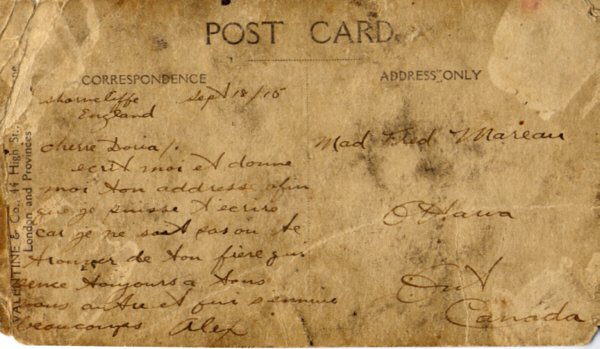 POST CARD
CORRESPONDENCE
ADDRESS ONLY
Shorncliffe Sept 18/15
England
cherie Doria/.
ecrit moi et donne
moi ton addresse afin
que je puisse t'ecrire
car je ne sait pas ou te
trouver de ton frère qui
pence toujours a tous
vous autre et qui s'ennuie
beaucoups Alex
Mad. Fred. Mareau
Ottawa
Ont
Canada
VALENTINE & Co., 44 High St.,
London and Provinces